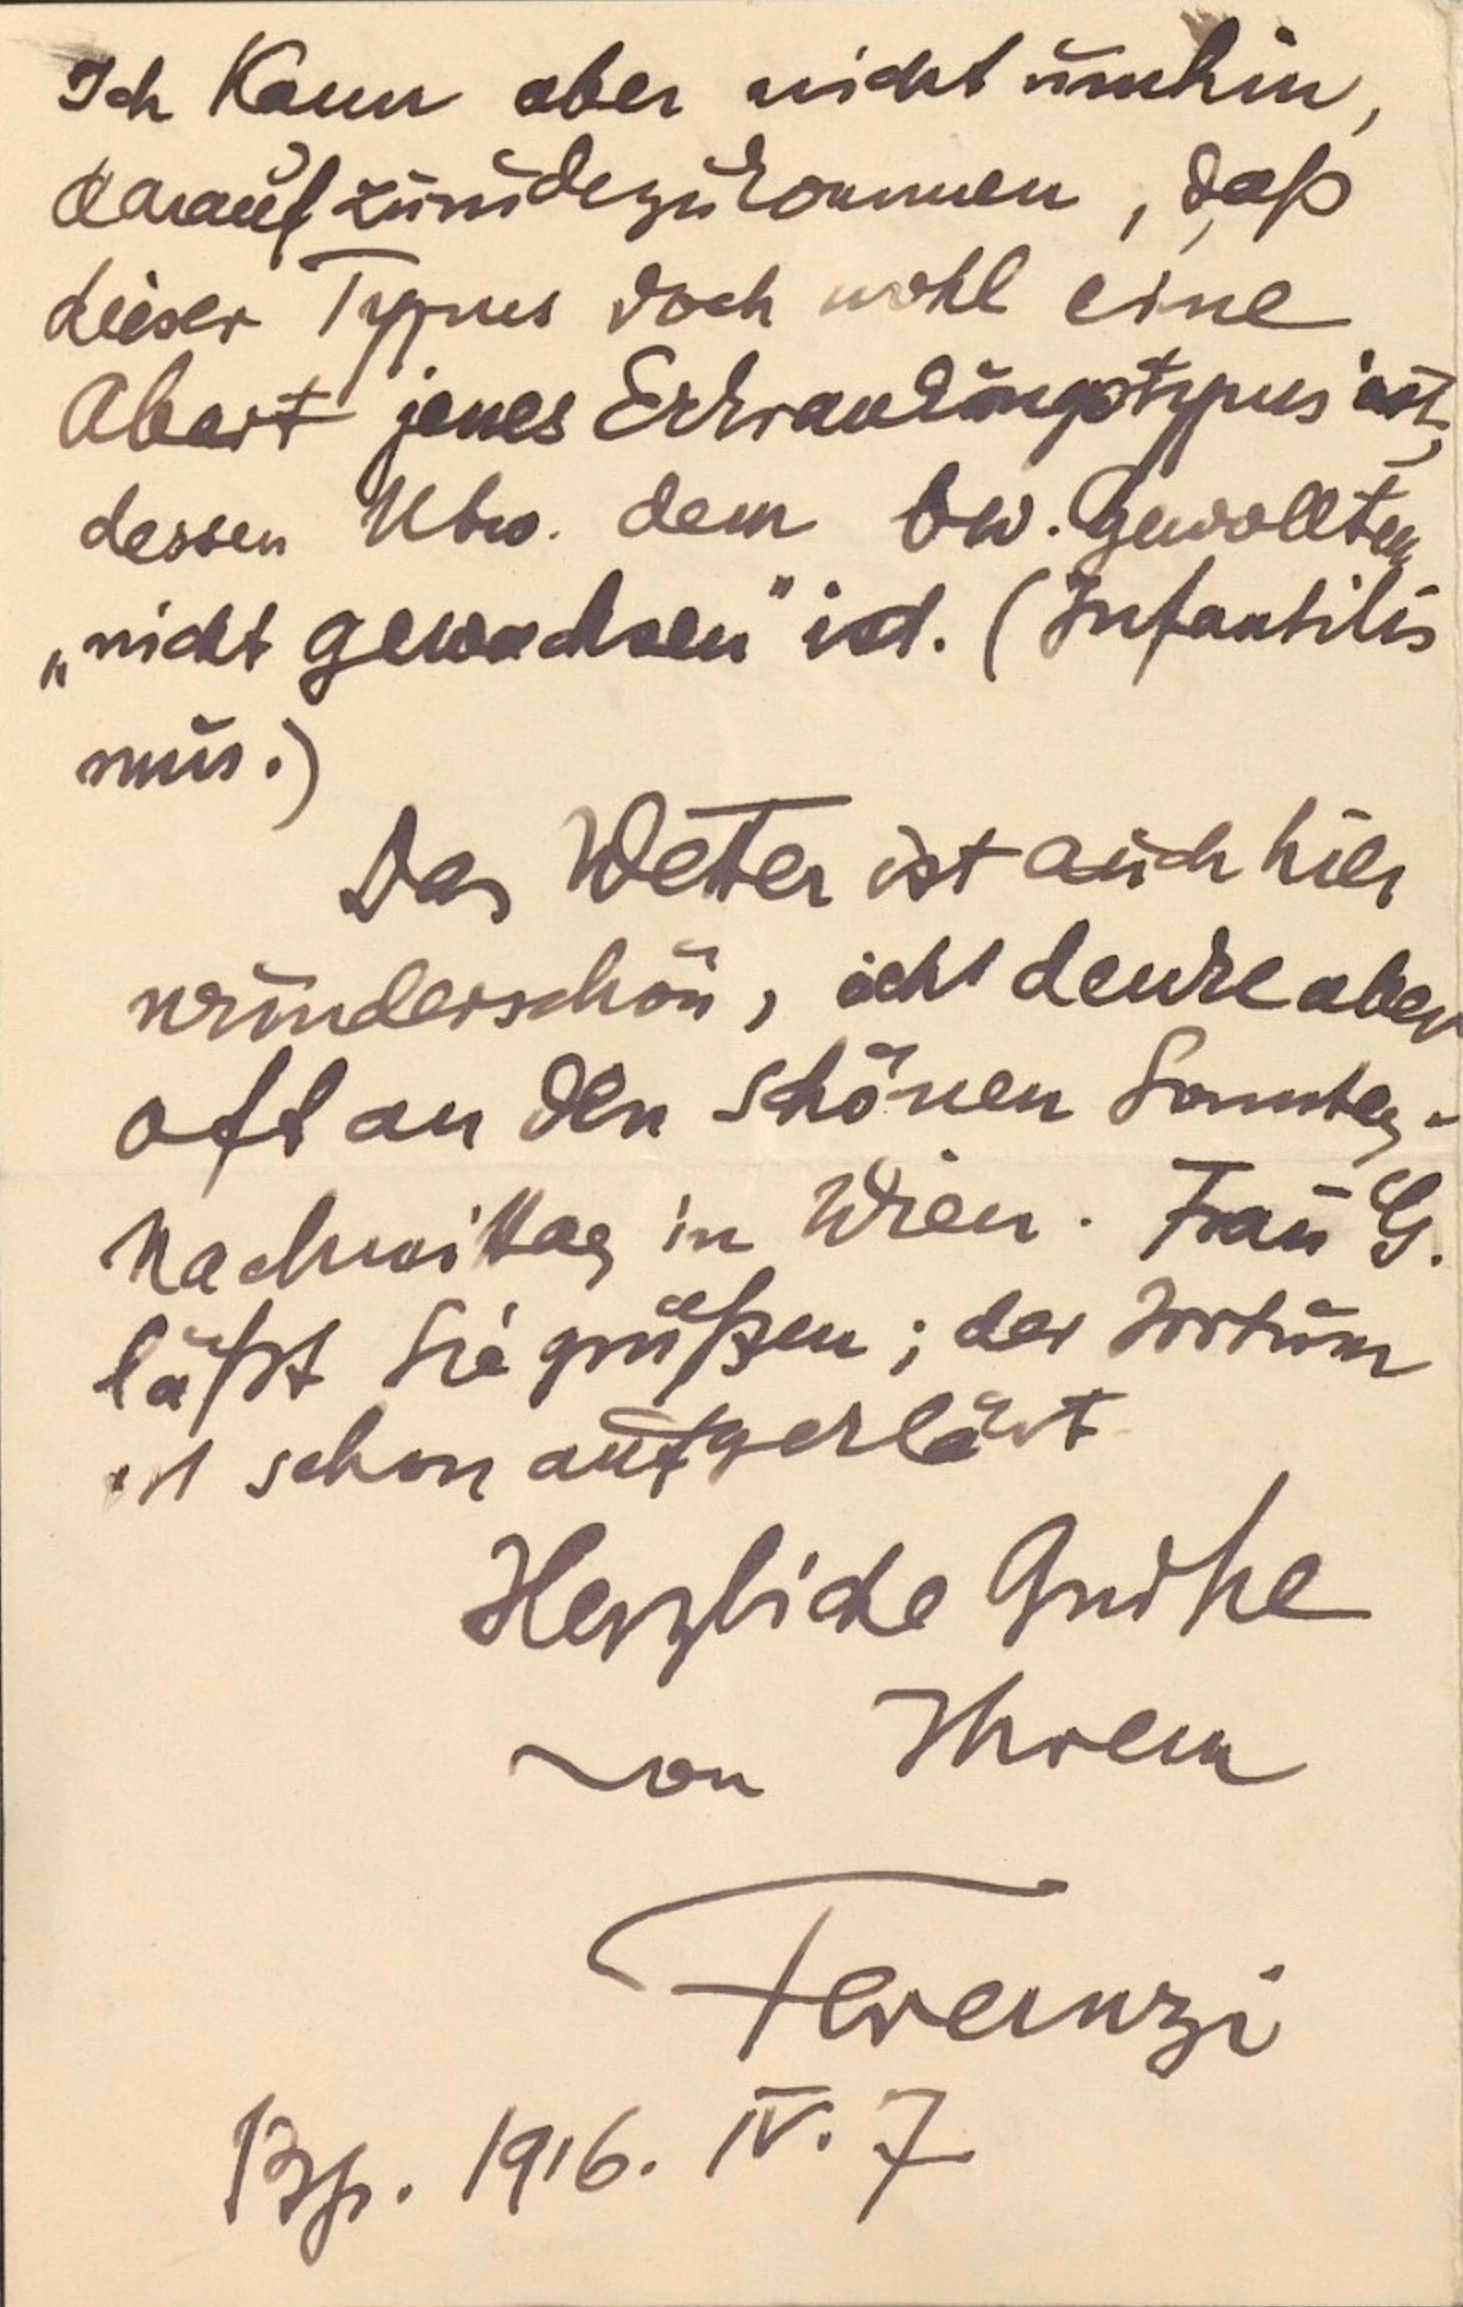 Ich kann aber nicht umhin,
darauf zurückzukommen, daß
dieser Typus doch wohl eine
Abart jenes Erkrankungstypus ist,
dessen Ubw. dem bw. Gewollten
„nicht gewachsen” ist. (Infantilis
mus.)
Das Wetter ist auch hier
wunderschön, ich denke aber
oft an den schönen Sonntag-
Nachmittag in Wien. Frau G.
läßt Sie grüßen; der Irrtum
ist schon aufgeklärt
Herzliche Grüße
von Ihrem
Ferenczi
Bp. 1916. IV. 7